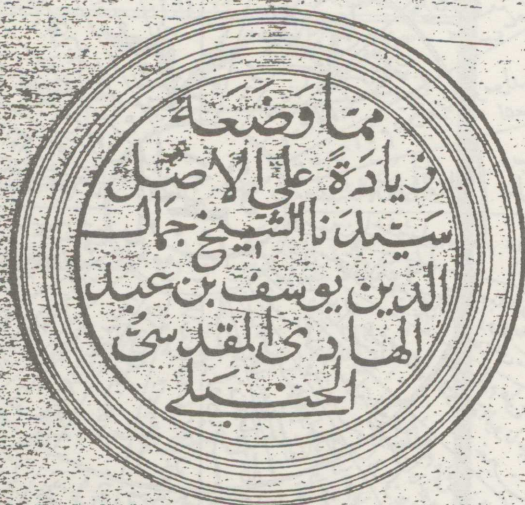 مما وَضَعَهُ
زيادَةً على الاصل
سَيّدنا الشيخ جمال
الدين يوسف بن عبد
الهادى المقدسىُّ
الحنبلى